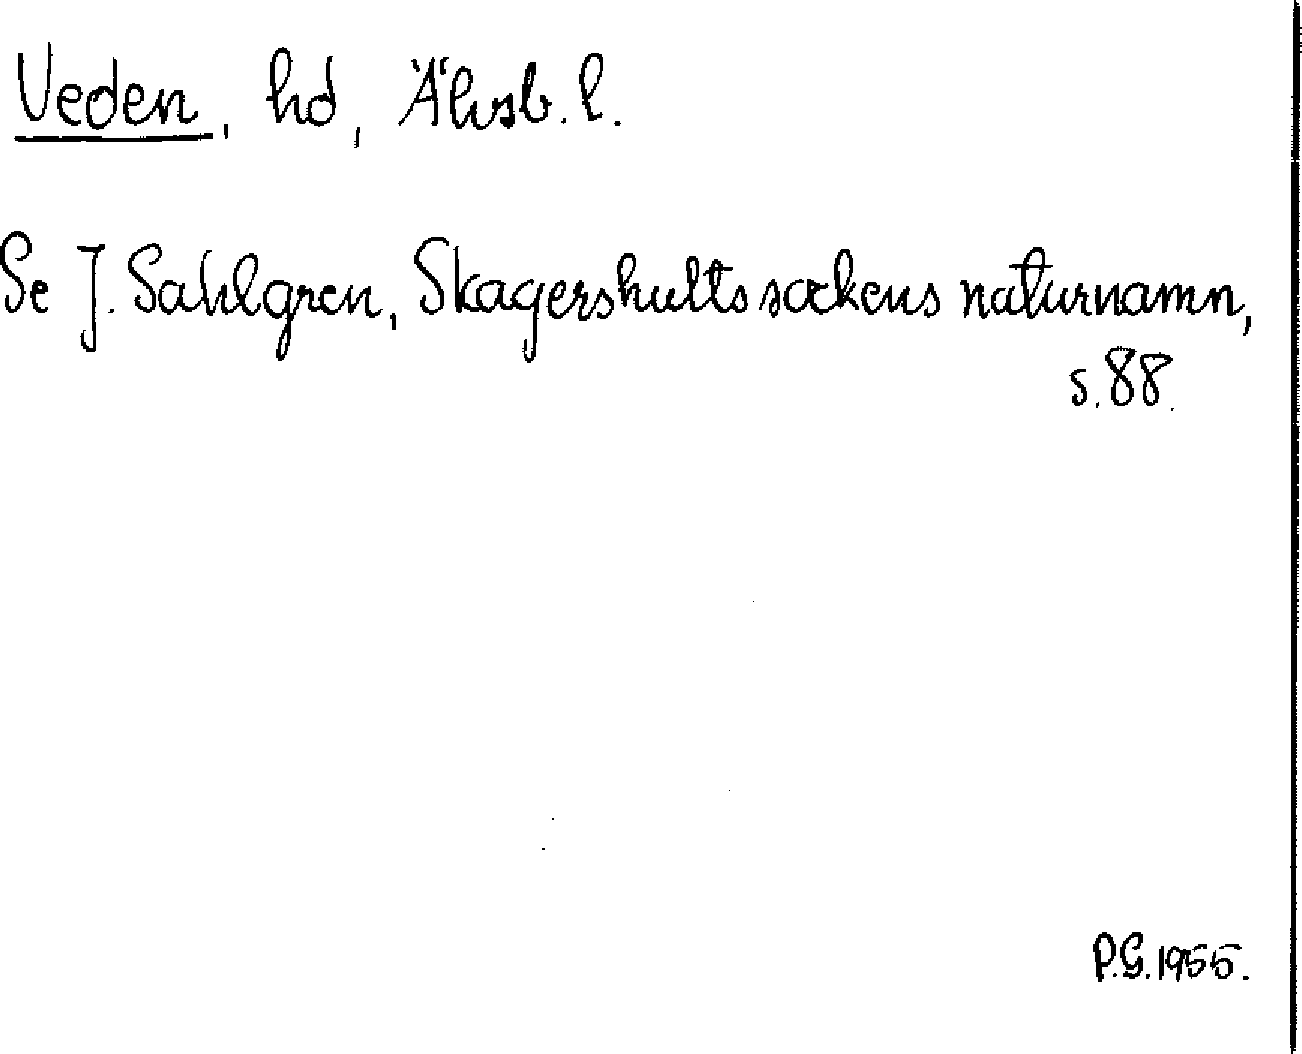 Veden, hd, Älvsb. l.
Se J. Sahlgren, Skagershults sockens naturnamn,
s. 88.
P.G. 1955.